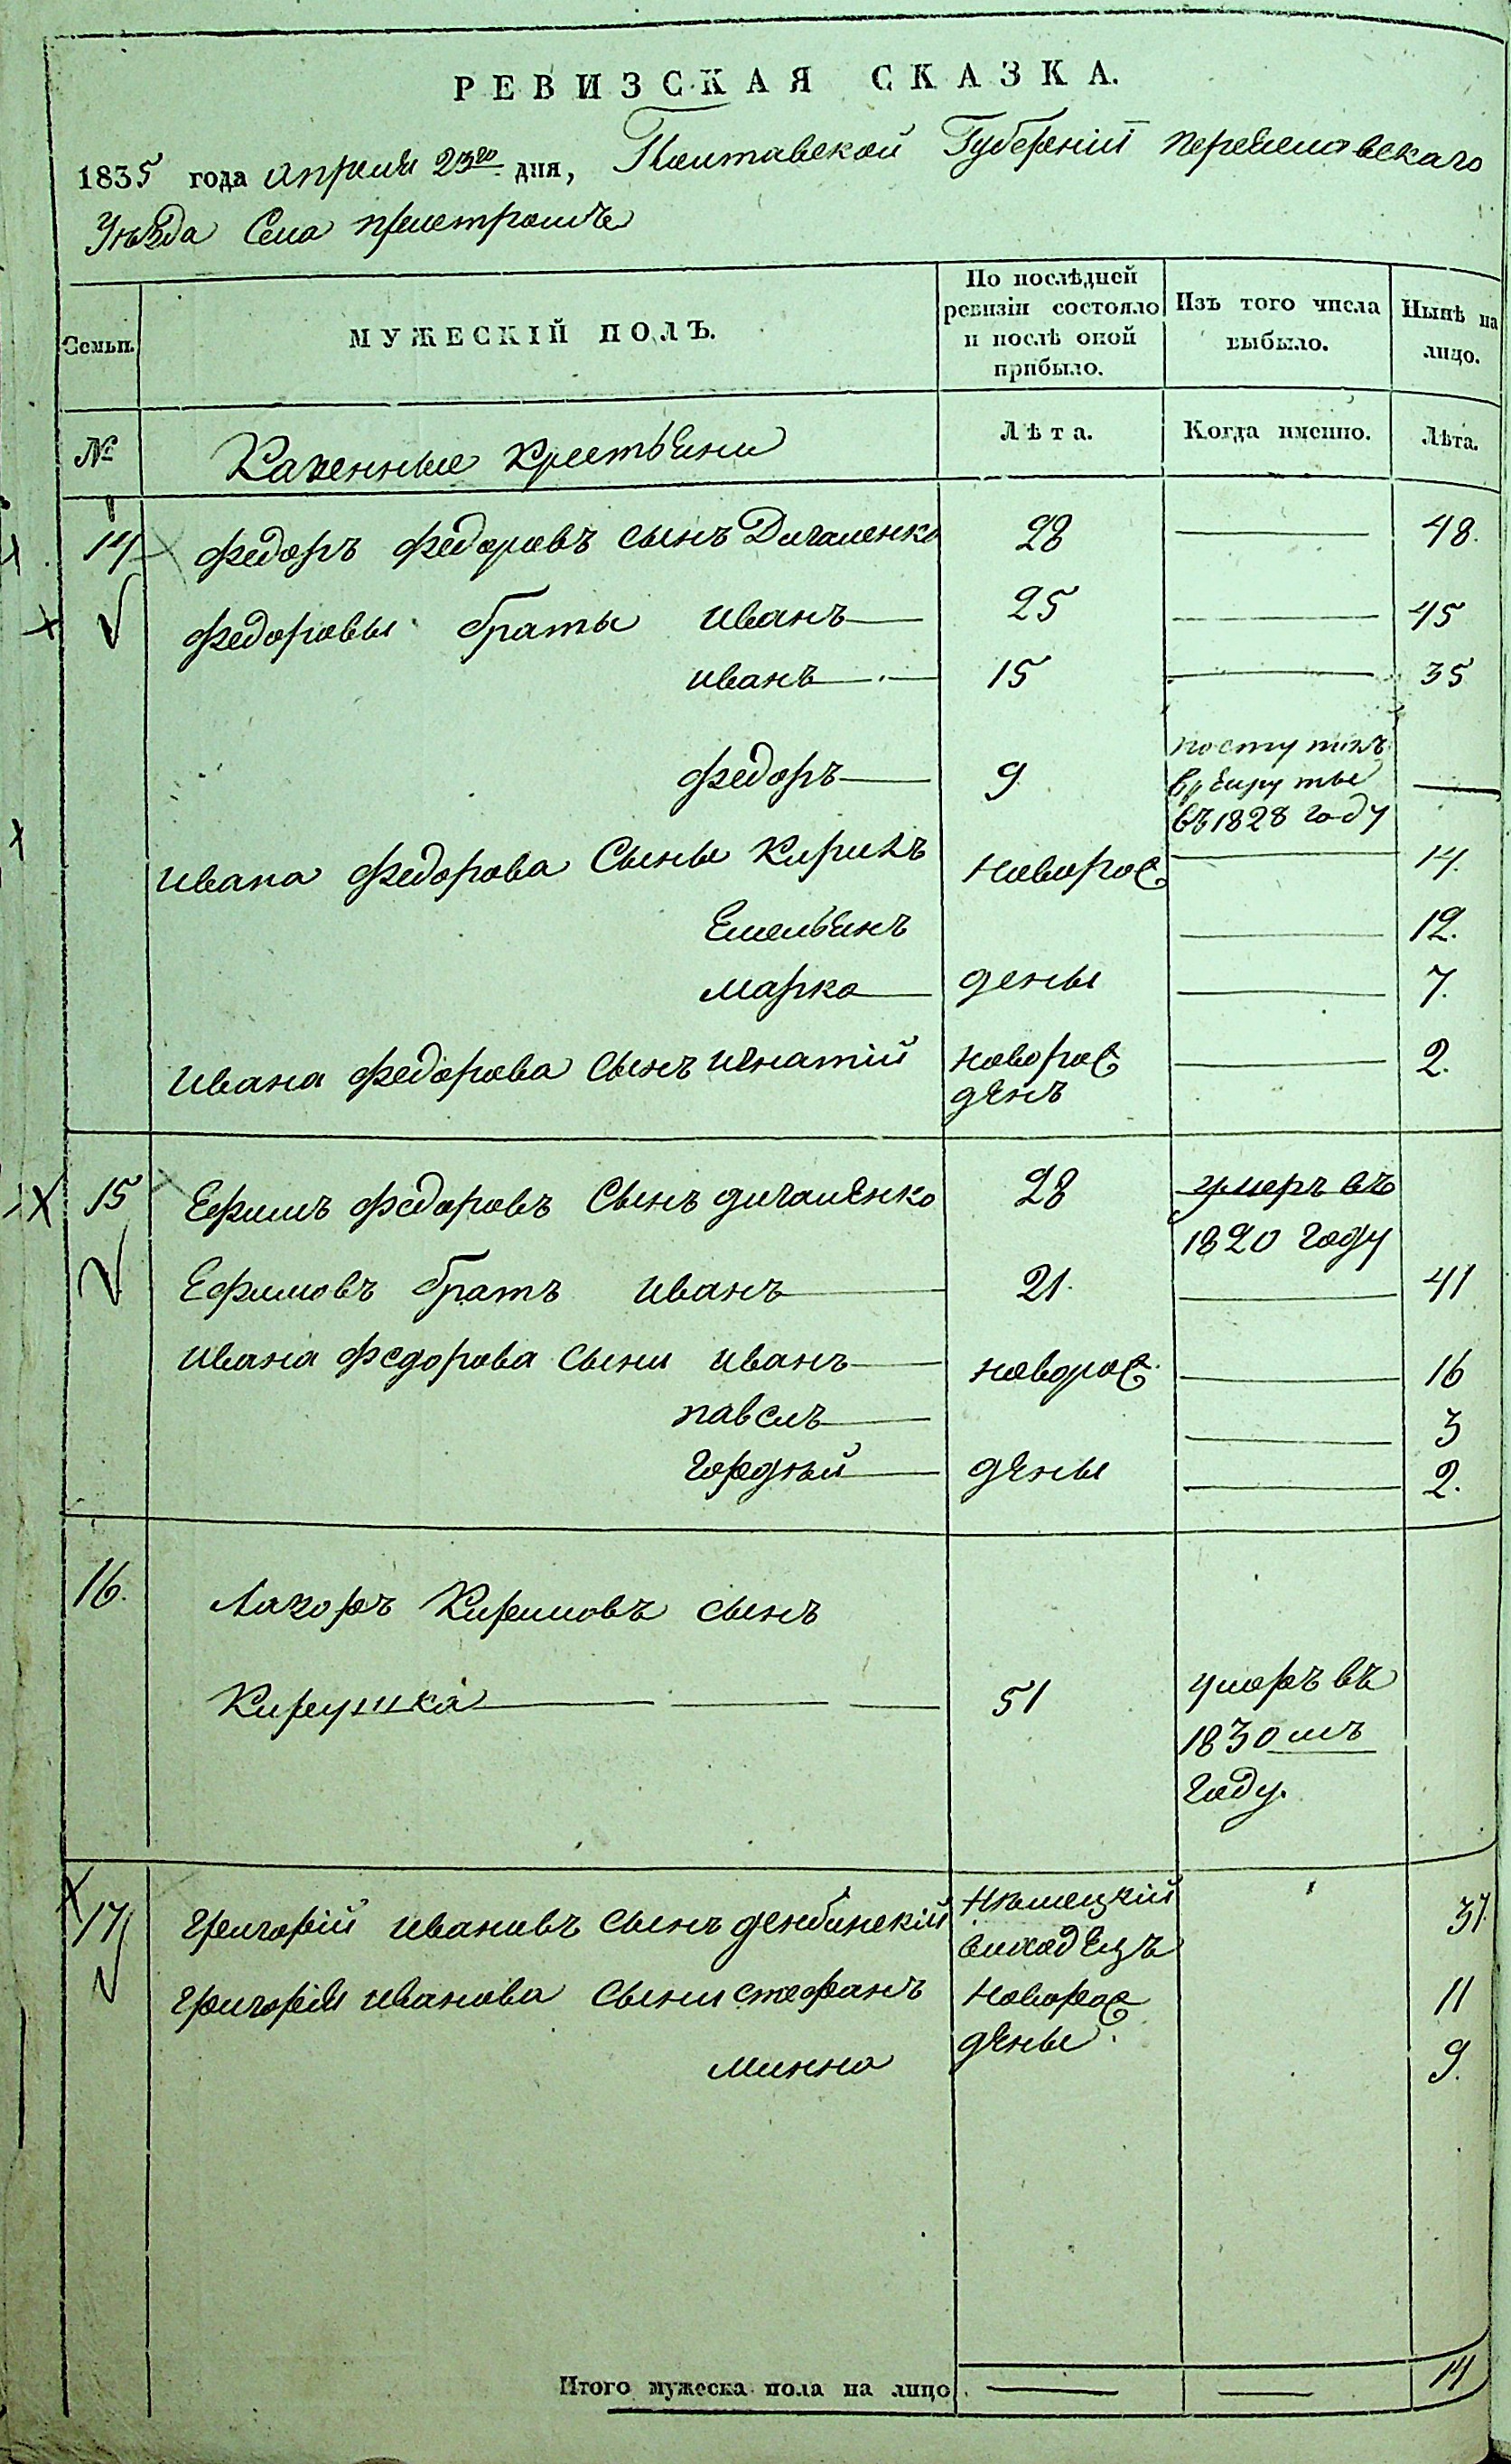 РЕВИЗСКАЯ СКАЗКА.
1835 года апреля 23го дня, Полтавской Губернiи переяславскаго
Уѣзда Села пристромъ
Семьи. МУЖЕСКІЙ ПОЛЪ. По послѣдней ревизіи состояло и послѣ оной прибыло. Изъ того числа выбыло. Нынѣ на лицо.
№ Казенные крестьяни Лѣта. Когда именно. Лѣта.
14 Федоръ Федоровъ сынъ Дигаленко 28 — 48.
Федоровы браты иванъ 25 — 45
иванъ 15 — 35
Федоръ 9 поступилъ
в рекруты —
въ 1828 году
ивана Федорова Сыны Кирилъ новорож 14.
Емельянъ — 12.
марко дены — 7.
ивана Федорова Сынъ игнатій новорож — 2.
денъ
15 Ефимъ Федоровъ Сынъ дигаленко 28 умеръ въ
1820 году
Ефимовъ братъ иванъ 21. — 41
ивана Федорова сыни иванъ новорож. — 16
павелъ — 3
гордѣй дены — 2.
16. Лазоръ Кириловъ сынъ
Кирушка 51 умеръ въ
1830мъ
году.
17 григорій ивановъ сынъ дембинскій Нѣмецкій 37.
виходецъ
григорія иванова сыни стефанъ новорож 11
дены.
минна 9.
Итого мужеска пола на лицо. — — 14